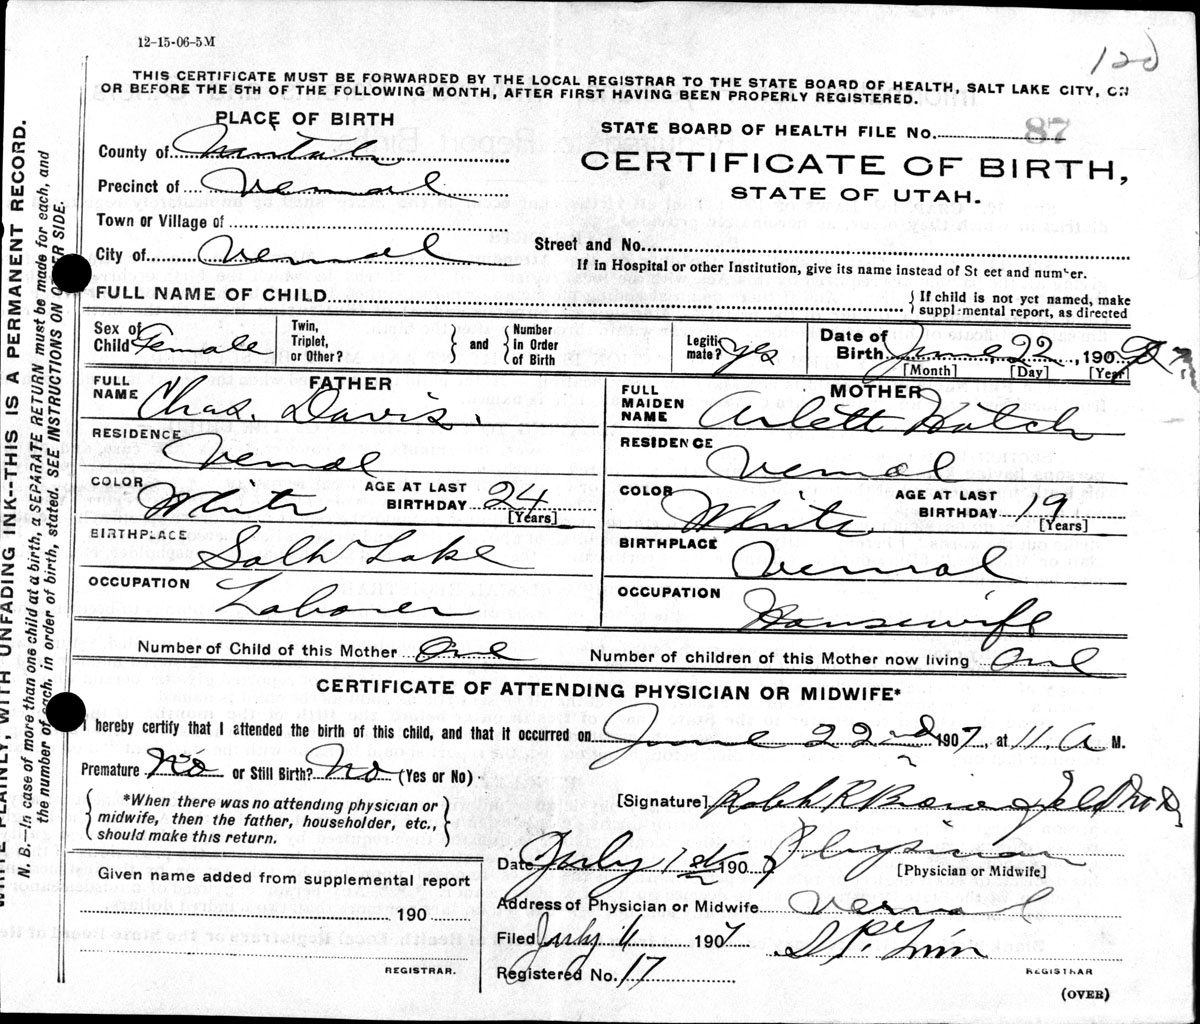 12-15-06-5M
120
THIS CERTIFICATE MUST BE FORWARDED BY THE LOCAL REGISTRAR TO THE STATE BOARD OF HEALTH, SALT LAKE CITY, ON
OR BEFORE THE 5TH OF THE FOLLOWING MONTH, AFTER FIRST HAVING BEEN PROPERLY REGISTERED.
PLACE OF BIRTH
County of
Precinct of Vernal
Town or Village of
City of Vernal
STATE BOARD OF HEALTH FILE NO. 87
CERTIFICATE OF BIRTH,
STATE OF UTAH.
Street and No.
If in Hospital or other Institution, give its name instead of St eet and number.
FULL NAME OF CHILD
If child is not yet named, make
supplemental report, as directed
Sex of Child Female
Twin, Triplet, or Other? and Number in Order of Birth
Legitimate? Yes
Date of Birth June 22, 190
[Month] [Day] [Year]
FATHER
FULL NAME Chas. Davis.
RESIDENCE Vernal
COLOR White AGE AT LAST BIRTHDAY 24 [Years]
BIRTHPLACE Salt Lake
OCCUPATION Laborer
MOTHER
FULL MAIDEN NAME Arlett Hatch
RESIDENCE Vernal
COLOR White. AGE AT LAST BIRTHDAY 19 [Years]
BIRTHPLACE Vernal
OCCUPATION Housewife
Number of Child of this Mother One
Number of children of this Mother now living One
CERTIFICATE OF ATTENDING PHYSICIAN OR MIDWIFE*
I hereby certify that I attended the birth of this child, and that it occurred on June 22nd 1907, at 11. A M.
Premature No or Still Birth? No (Yes or No)
*When there was no attending physician or
midwife, then the father, householder, etc.,
should make this return.
[Signature]
Physician
[Physician or Midwife]
Date July 1st 1907
Address of Physician or Midwife Vernal
Filed July 4 1907
REGISTRAR
Registered No. 17
(OVER)
Given name added from supplemental report
190
REGISTRAR.
WRITE PLAINLY, WITH UNFADING INK--THIS IS A PERMANENT RECORD.
N. B.--In case of more than one child at a birth, a SEPARATE RETURN must be made for each, and
the number of each, in order of birth, stated. SEE INSTRUCTIONS ON OTHER SIDE.